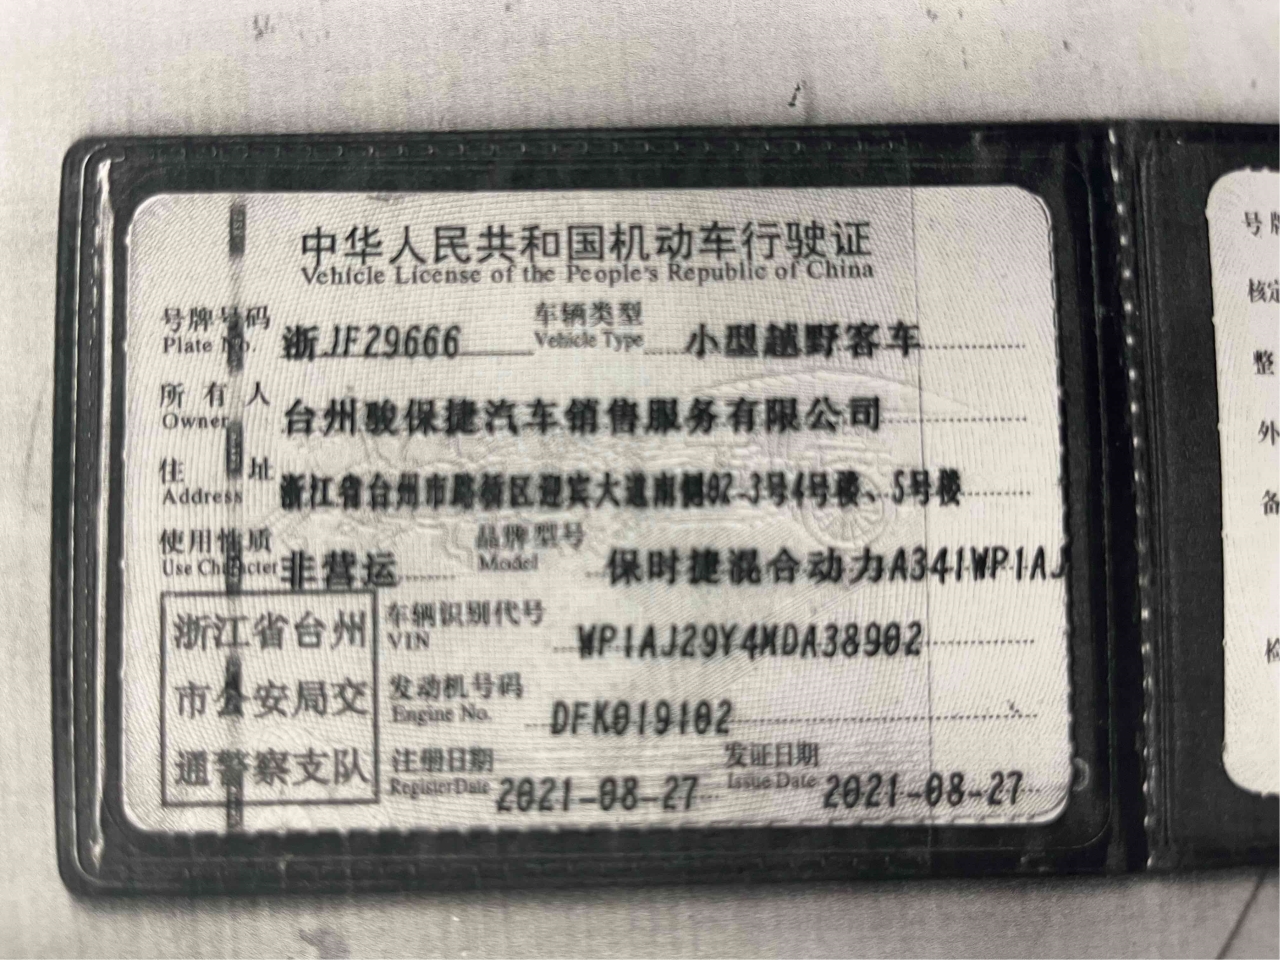 中华人民共和国机动车行驶证
Vehicle License of the People's Republic of China
号牌号码 浙JF29666 车辆类型 小型越野客车
Plate No. Vehicle Type
所有人 台州骏保捷汽车销售服务有限公司
Owner
住址 浙江省台州市路桥区迎宾大道南侧82-3号4号楼、5号楼
Address
使用性质 非营运 品牌型号 保时捷混合动力A341WP1AJ
Use Character Model
浙江省台州
市公安局交
通警察支队
车辆识别代号 WP1AJ29Y4MDA38902
VIN
发动机号码 DFK019102
Engine No.
注册日期 2021-08-27 发证日期 2021-08-27
Register Date Issue Date
号牌
核定
整
外
备
检